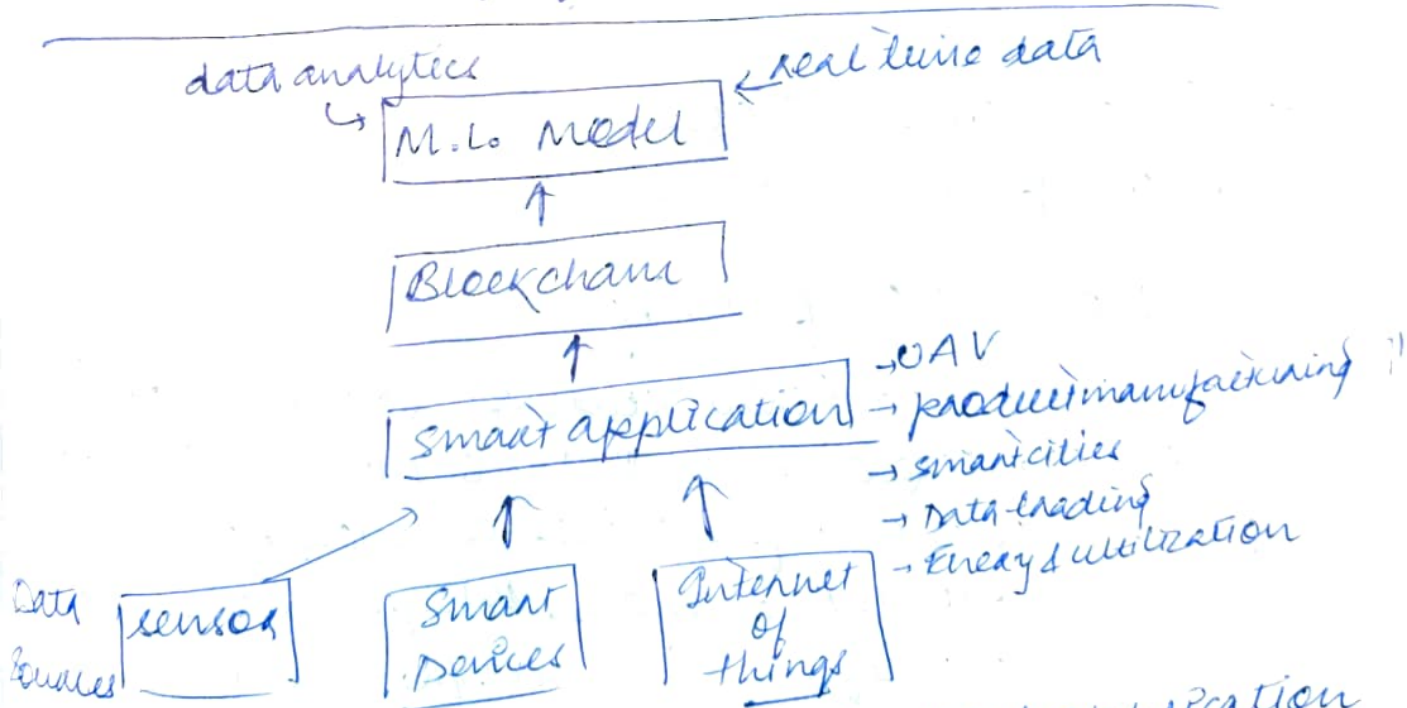 data analytics
real time data
M.L. Model
Blockchain
smart application
→ UAV
→ product manufacturing
→ smart cities
→ Data trading
→ Energy & utilization
Data
Sources
sensor
Smart
Devices
Internet
of
things